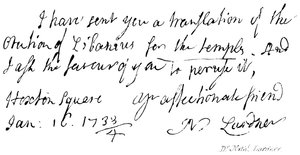 I have sent you a translation of the
Oration of Libanius for the temples. And
I ask the favour of you to peruse it,
Hoxton Square yr affectionate friend
Jan: 16. 1733/4 N. Lardner
Dr. Nathl. Lardner